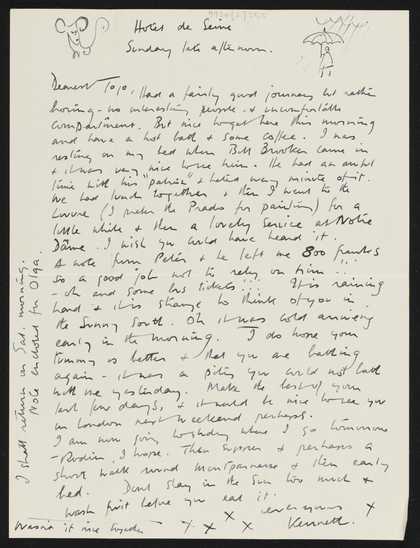 Hotel de Seine
Sunday late afternoon.
Dearest Jojo, Had a fairly good journey but rather
boring - no interesting people & uncomfortable
compartment. But nice to get here this morning
and have a hot bath & some coffee. I was
resting on my bed when Bill Brooker came in
& it was very nice to see him. He had an awful
time with his "patron" & hated every minute of it.
We had lunch together & then I went to the
Louvre (I prefer the Prado for painting) for a
little while & then a lovely Service at Notre
Dame. I wish you could have heard it.
A note from Peter & he left me 800 francs
so a good job not to rely on him!!!
- oh and some bus tickets!!! It is raining
hard & it is strange to think of you in
the Sunny South. Oh it was cold arriving
early in the morning. I do hope your
tummy is better & that you are bathing
again - it was a pity you could not bath
with me yesterday. Make the best of your
last few days, & it would be nice to see you
in London next weekend perhaps.
I am now going to study where I go tomorrow
- Rodin, I hope. Then supper & perhaps a
short walk round Montparnasse & then early
bed. Dont stay in the Sun too much &
wash fruit before you eat it.
ever yours x
Wasn't it nice together - x x x Kenneth.
I shall return on Sat. morning.
Note enclosed for Olga.